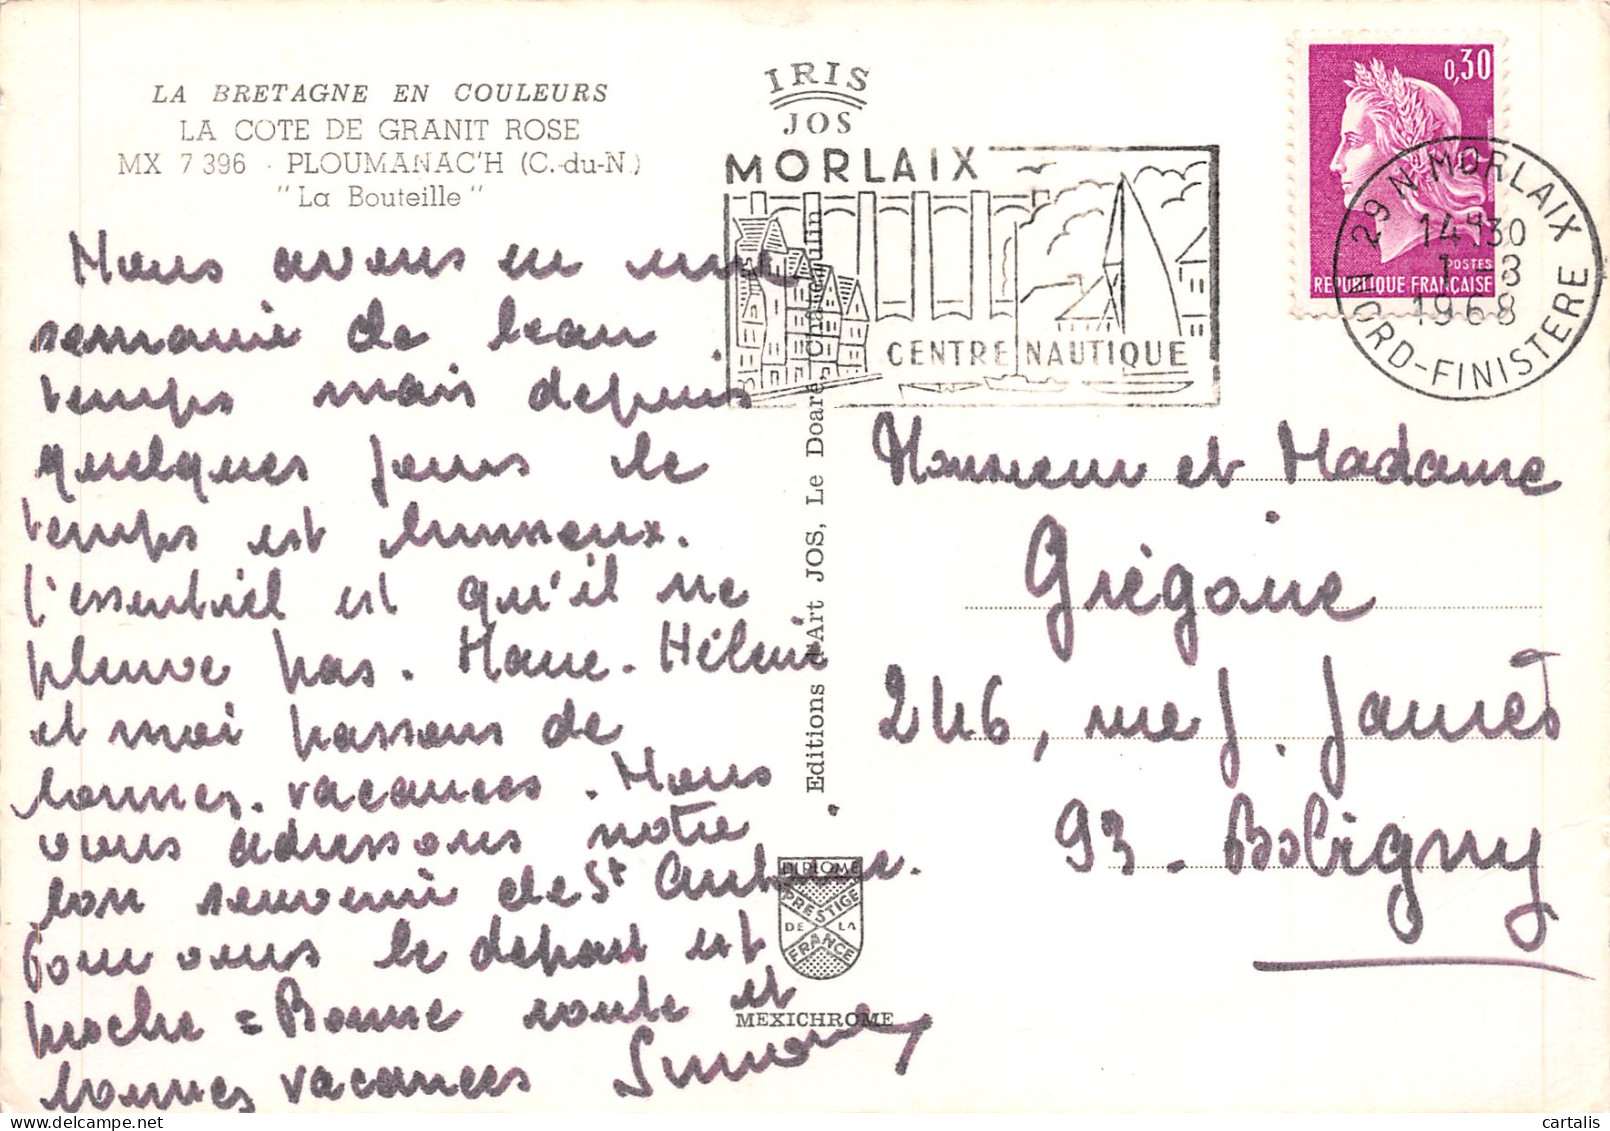 LA BRETAGNE EN COULEURS
LA COTE DE GRANIT ROSE
MX 7 396 - PLOUMANAC'H (C.-du-N.)
"La Bouteille"
Nous avons eu une
semaine de beau
temps mais depuis
quelques jours le
temps est brumeux.
l'essentiel est qu'il ne
pleuve pas. Marie-Hélène
et moi passons de
bonnes vacances. Nous
vous adressons notre
bon souvenir de St
Pour vous le départ est
proche = Bonne route et
bonnes vacances Simone
IRIS
JOS
MORLAIX
CENTRE NAUTIQUE
0,30
POSTES
REPUBLIQUE FRANÇAISE
29 N MORLAIX
14H30
1 - 8
1968
NORD-FINISTERE
Editions d'Art JOS, Le Doaré, Châteaulin
Monsieur et Madame
Grégoire
246, rue J. Jaurès
93 - Bobigny
DIPLOME
PRESTIGE
DE LA
FRANCE
MEXICHROME
cartalis